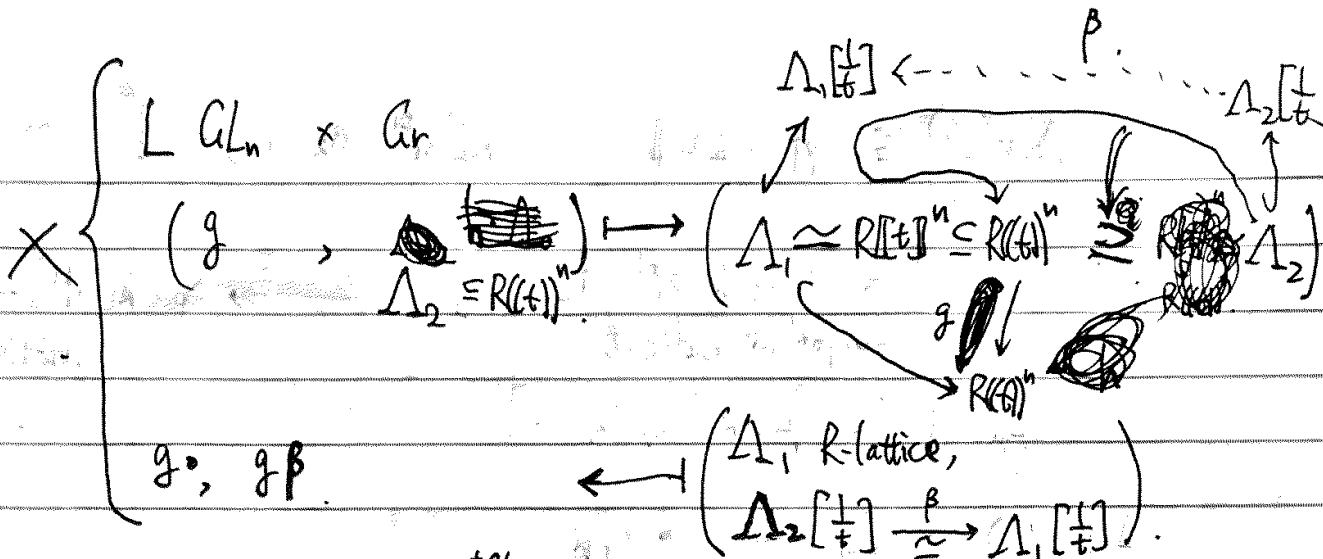 β.
Λ₁[1/t] ⇠ Λ₂[1/t
L GLₙ × Gr
( g , ) ↦ ( Λ₁ ≃ R[[t]]ⁿ ⊆ R((t))ⁿ ⊇ Λ₂ )
Λ₂ ⊆ R((t))ⁿ.
g
R((t))ⁿ
g, gβ. ↤ ( Λ₁ R-lattice,
Λ₂[1/t] β ≃ → Λ₁[1/t] ).